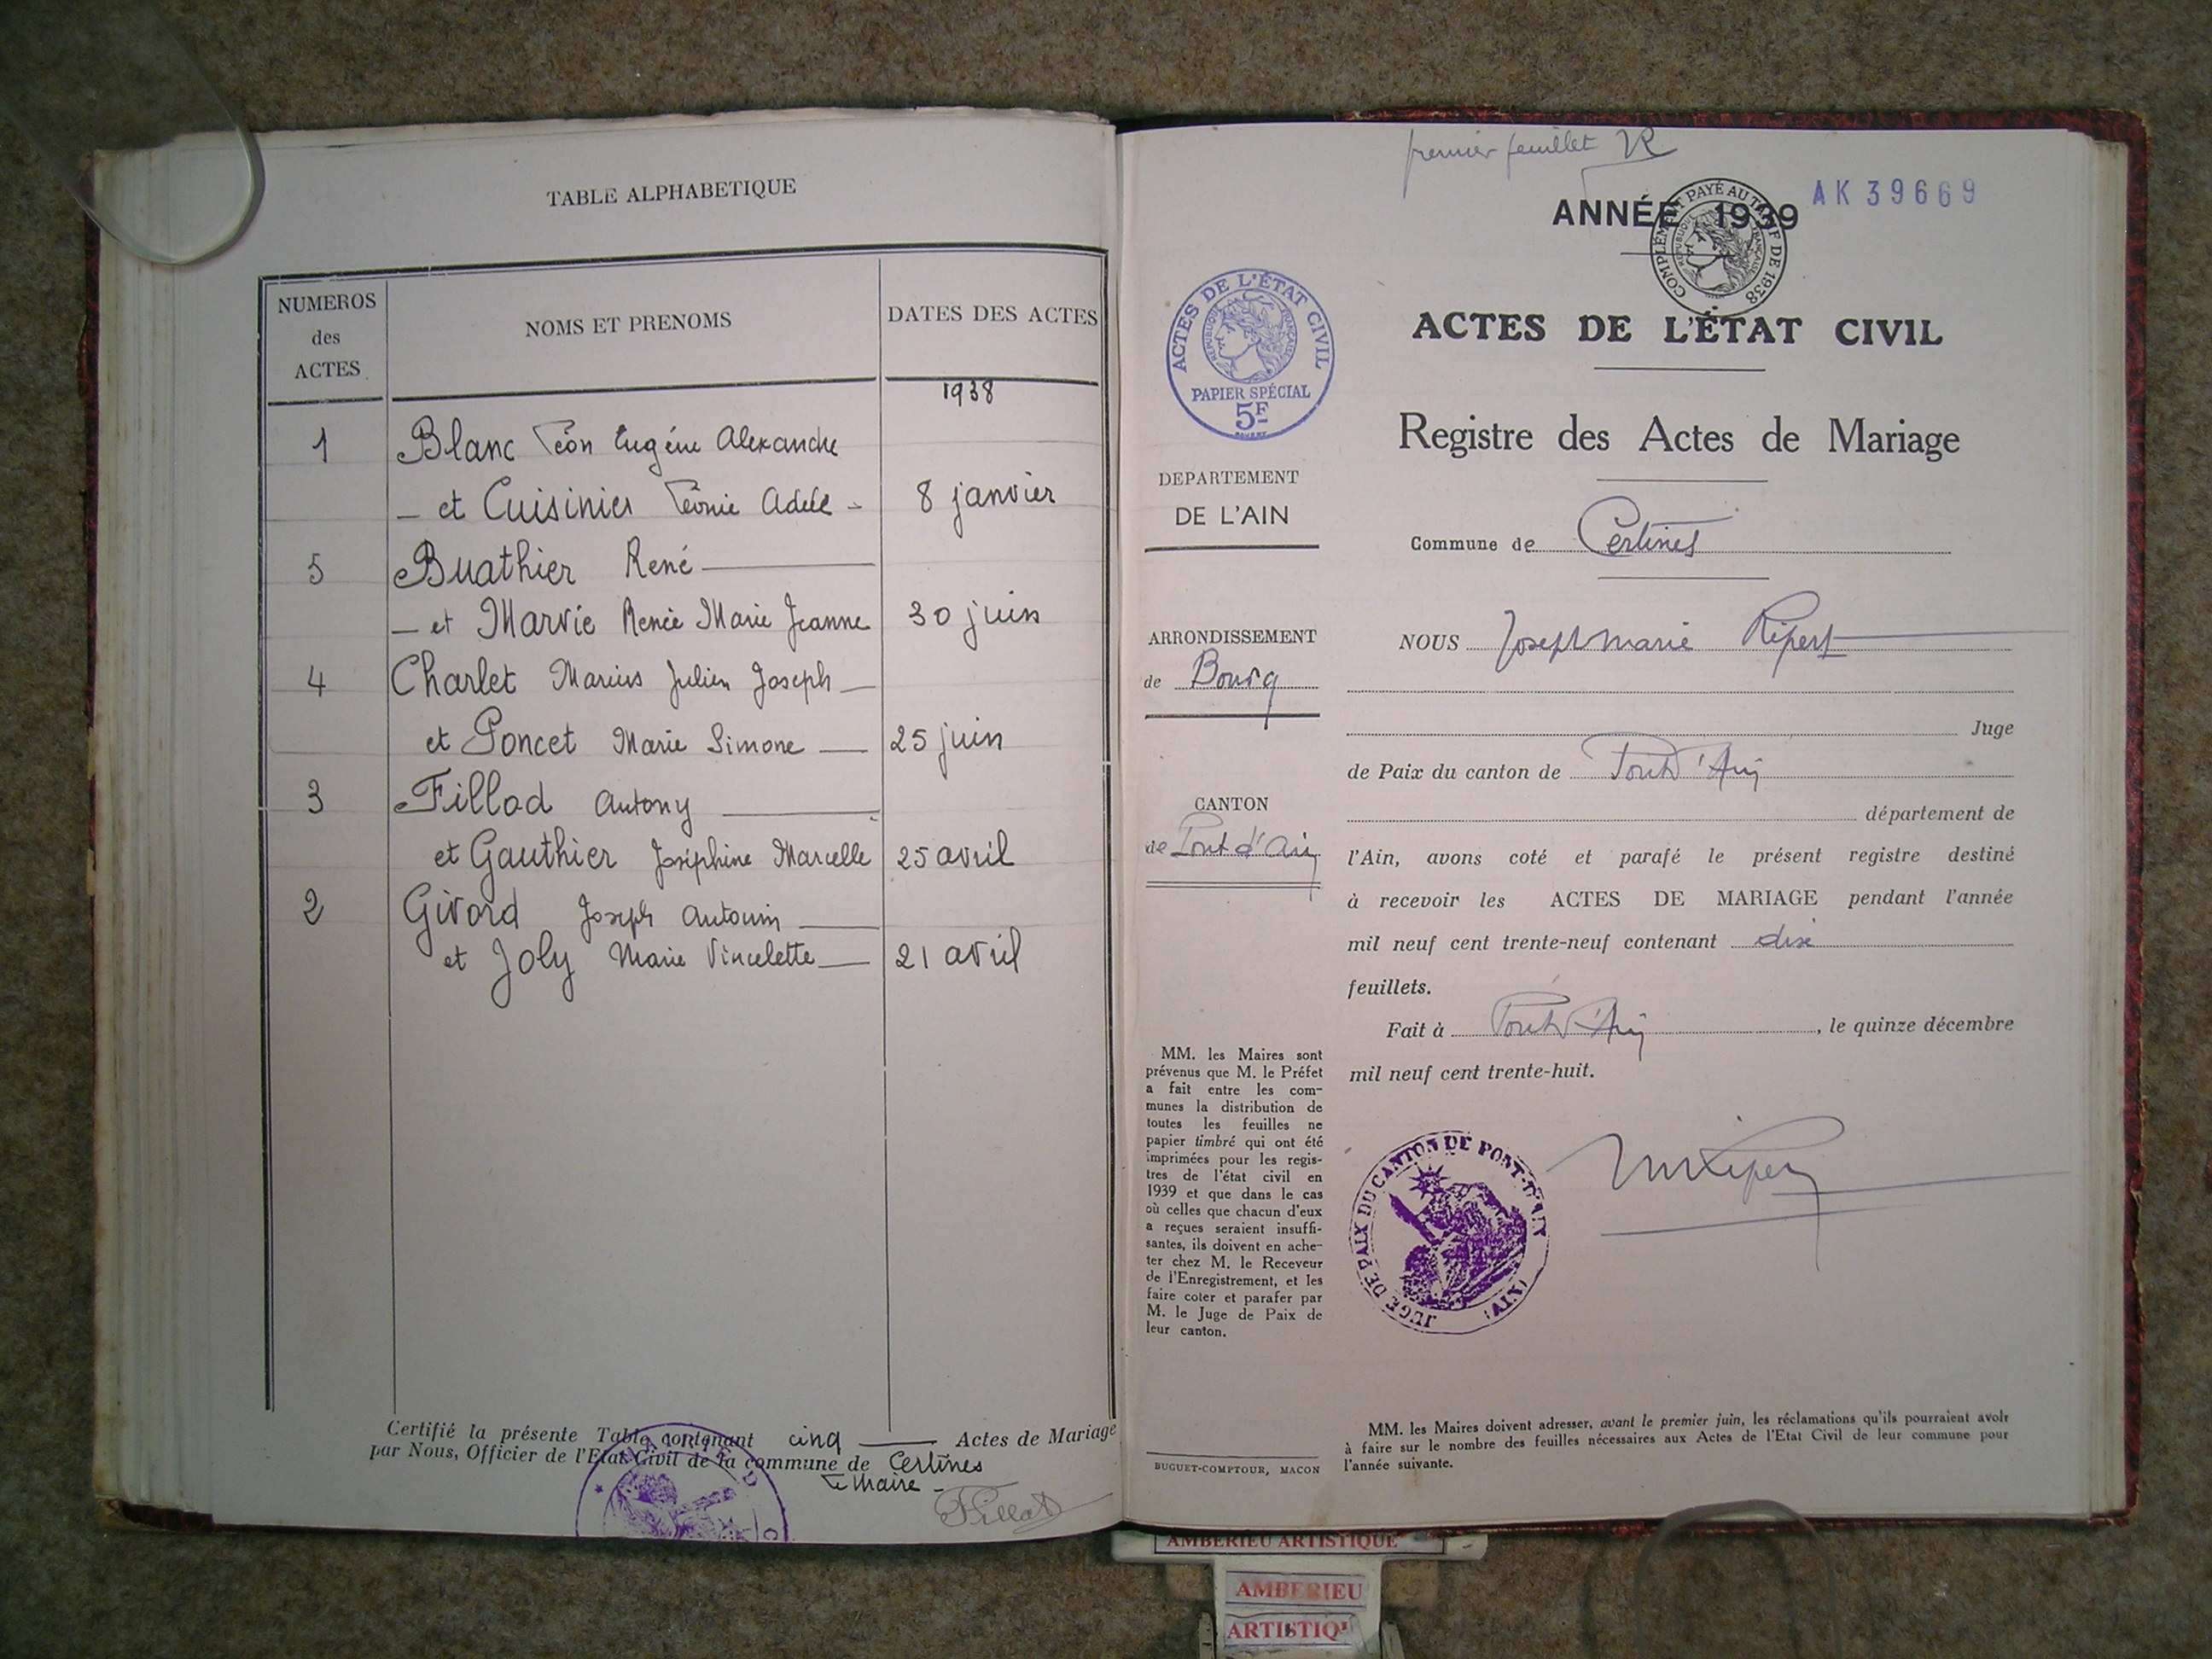 TABLE ALPHABETIQUE
NUMEROS des ACTES
NOMS ET PRENOMS
DATES DES ACTES
1938
1 Blanc Léon Eugène Alexandre
— et Cuisinier Léonie Adèle - 8 janvier
5 Buathier René
— et Marvie Renée Marie Jeanne 30 juin
4 Charlet Marius Julien Joseph
et Poncet Marie Simone 25 juin
3 Fillod Antony
et Gauthier Joséphine Marcelle 25 avril
2 Givord Joseph Antonin
et Joly Marie Vincelette 21 avril
Certifié la présente Table contenant cinq Actes de Mariage
par Nous, Officier de l'Etat Civil de la commune de Certines
Le Maire -
premier feuillet
ANNÉE 1939
AK 39669
COMPLÉMENT PAYÉ AU TARIF DE 1938
REPUBLIQUE FRANÇAISE
ACTES DE L'ÉTAT CIVIL
REPUBLIQUE FRANÇAISE
PAPIER SPÉCIAL
5F
ACTES DE L'ÉTAT CIVIL
Registre des Actes de Mariage
DEPARTEMENT
DE L'AIN
Commune de Certines
ARRONDISSEMENT
de Bourg
CANTON
de Pont d'Ain
NOUS Joseph Marie Ripert
Juge
de Paix du canton de Pont d'Ain
département de
l'Ain, avons coté et parafé le présent registre destiné
à recevoir les ACTES DE MARIAGE pendant l'année
mil neuf cent trente-neuf contenant dix
feuillets.
Fait à Pont d'Ain, le quinze décembre
mil neuf cent trente-huit.
MM. les Maires sont
prévenus que M. le Préfet
a fait entre les com-
munes la distribution de
toutes les feuilles ne
papier timbré qui ont été
imprimées pour les regis-
tres de l'état civil en
1939 et que dans le cas
où celles que chacun d'eux
a reçues seraient insuffi-
santes, ils doivent en ache-
ter chez M. le Receveur
de l'Enregistrement, et les
faire coter et parafer par
M. le Juge de Paix de
leur canton.
JUGE DE PAIX DU CANTON DE PONT-D'AIN
(AIN)
BUGUET-COMPTOUR, MACON
MM. les Maires doivent adresser, avant le premier juin, les réclamations qu'ils pourraient avoir
à faire sur le nombre des feuilles nécessaires aux Actes de l'Etat Civil de leur commune pour
l'année suivante.
AMBERIEU ARTISTIQUE
AMBERIEU
ARTISTIQ